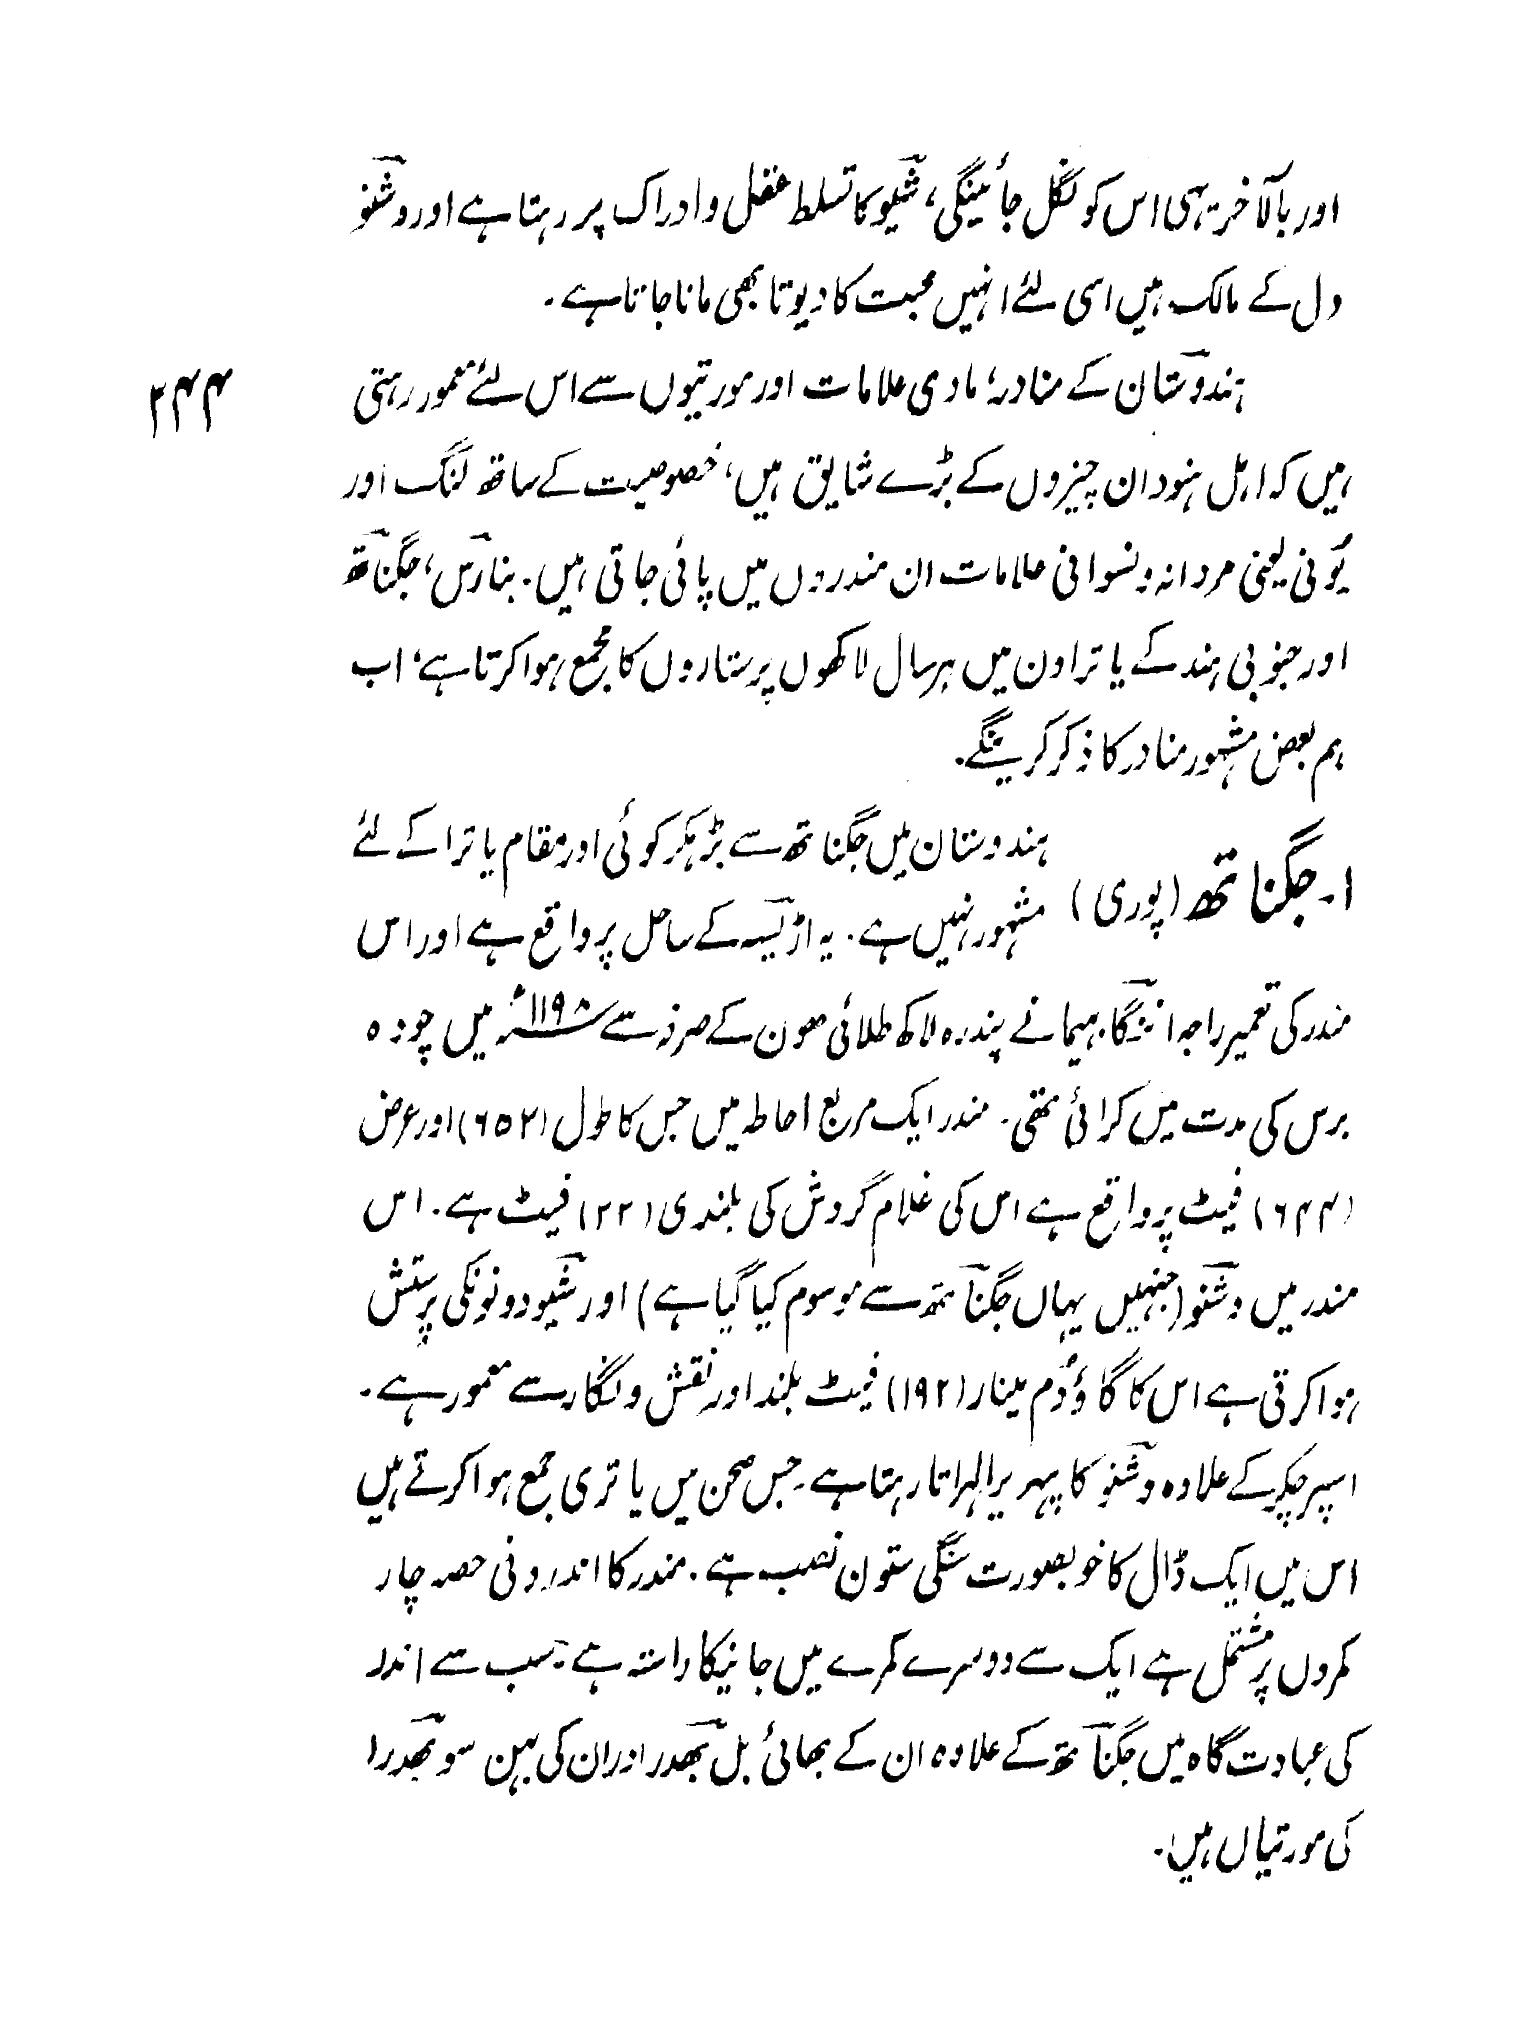 اور بالآخر یہی اس کو نگل جائینگی، شیو کا تسلط عقل و ادراک پر رہتا ہے اور وشنو
دل کے مالک ہیں اسی لئے انہیں محبت کا دیوتا بھی مانا جاتا ہے۔
ہندوستان کے منادر، مادی علامات اور مورتیوں سے اس لئے معمور رہتی
۲۴۴
ہیں کہ اہل ہنود ان چیزوں کے بڑے شایق ہیں، خصوصیت کے ساتھ لنگ اور
یونی یعنی مردانہ و نسوانی علامات ان مندروں میں پائی جاتی ہیں۔ بنارس، جگناتھ
اور جنوبی ہند کے یاتراون میں ہر سال لاکھوں پرستاروں کا مجمع ہوا کرتا ہے، اب
ہم بعض مشہور منادر کا ذکر کرینگے۔
۱۔ جگناتھ (پوری)
ہندوستان میں جگناتھ سے بڑہکر کوئی اور مقام یاترا کے لئے
مشہور نہیں ہے۔ یہ اڑیسہ کے ساحل پر واقع ہے اور اس
مندر کی تعمیر راجہ اننگا بہیما نے پندرہ لاکھ طلائی ہون کے صرفہ سے ۱۱۹۸ء میں چودہ
برس کی مدت میں کرائی تھی۔ مندر ایک مربع احاطہ میں جس کا طول (۶۵۲) اور عرض
(۶۴۴) فیٹ پر واقع ہے اس کی غلام گردش کی بلندی (۲۲) فیٹ ہے۔ اس
مندر میں وشنو (جنہیں یہاں جگناتھ سے موسوم کیا گیا ہے) اور شیو دونونکی پرستش
ہوا کرتی ہے اس کا گاؤدم مینار (۱۹۲) فیٹ بلند اور نقش و نگار سے معمور ہے۔
اسپر چکر کے علاوہ وشنو کا پہریرا لہراتا رہتا ہے۔ جس صحن میں یاتری جمع ہوا کرتے ہیں
اس میں ایک ڈال کا خوبصورت سنگی ستون نصب ہے۔ مندر کا اندرونی حصہ چار
کمروں پر مشتمل ہے ایک سے دوسرے کمرے میں جانیکا راستہ ہے۔ سب سے اندر
کی عبادت گاہ میں جگناتھ کے علاوہ ان کے بھائی بل بھدر اور ان کی بہن سوبھدرا
کی مورتیاں ہیں۔